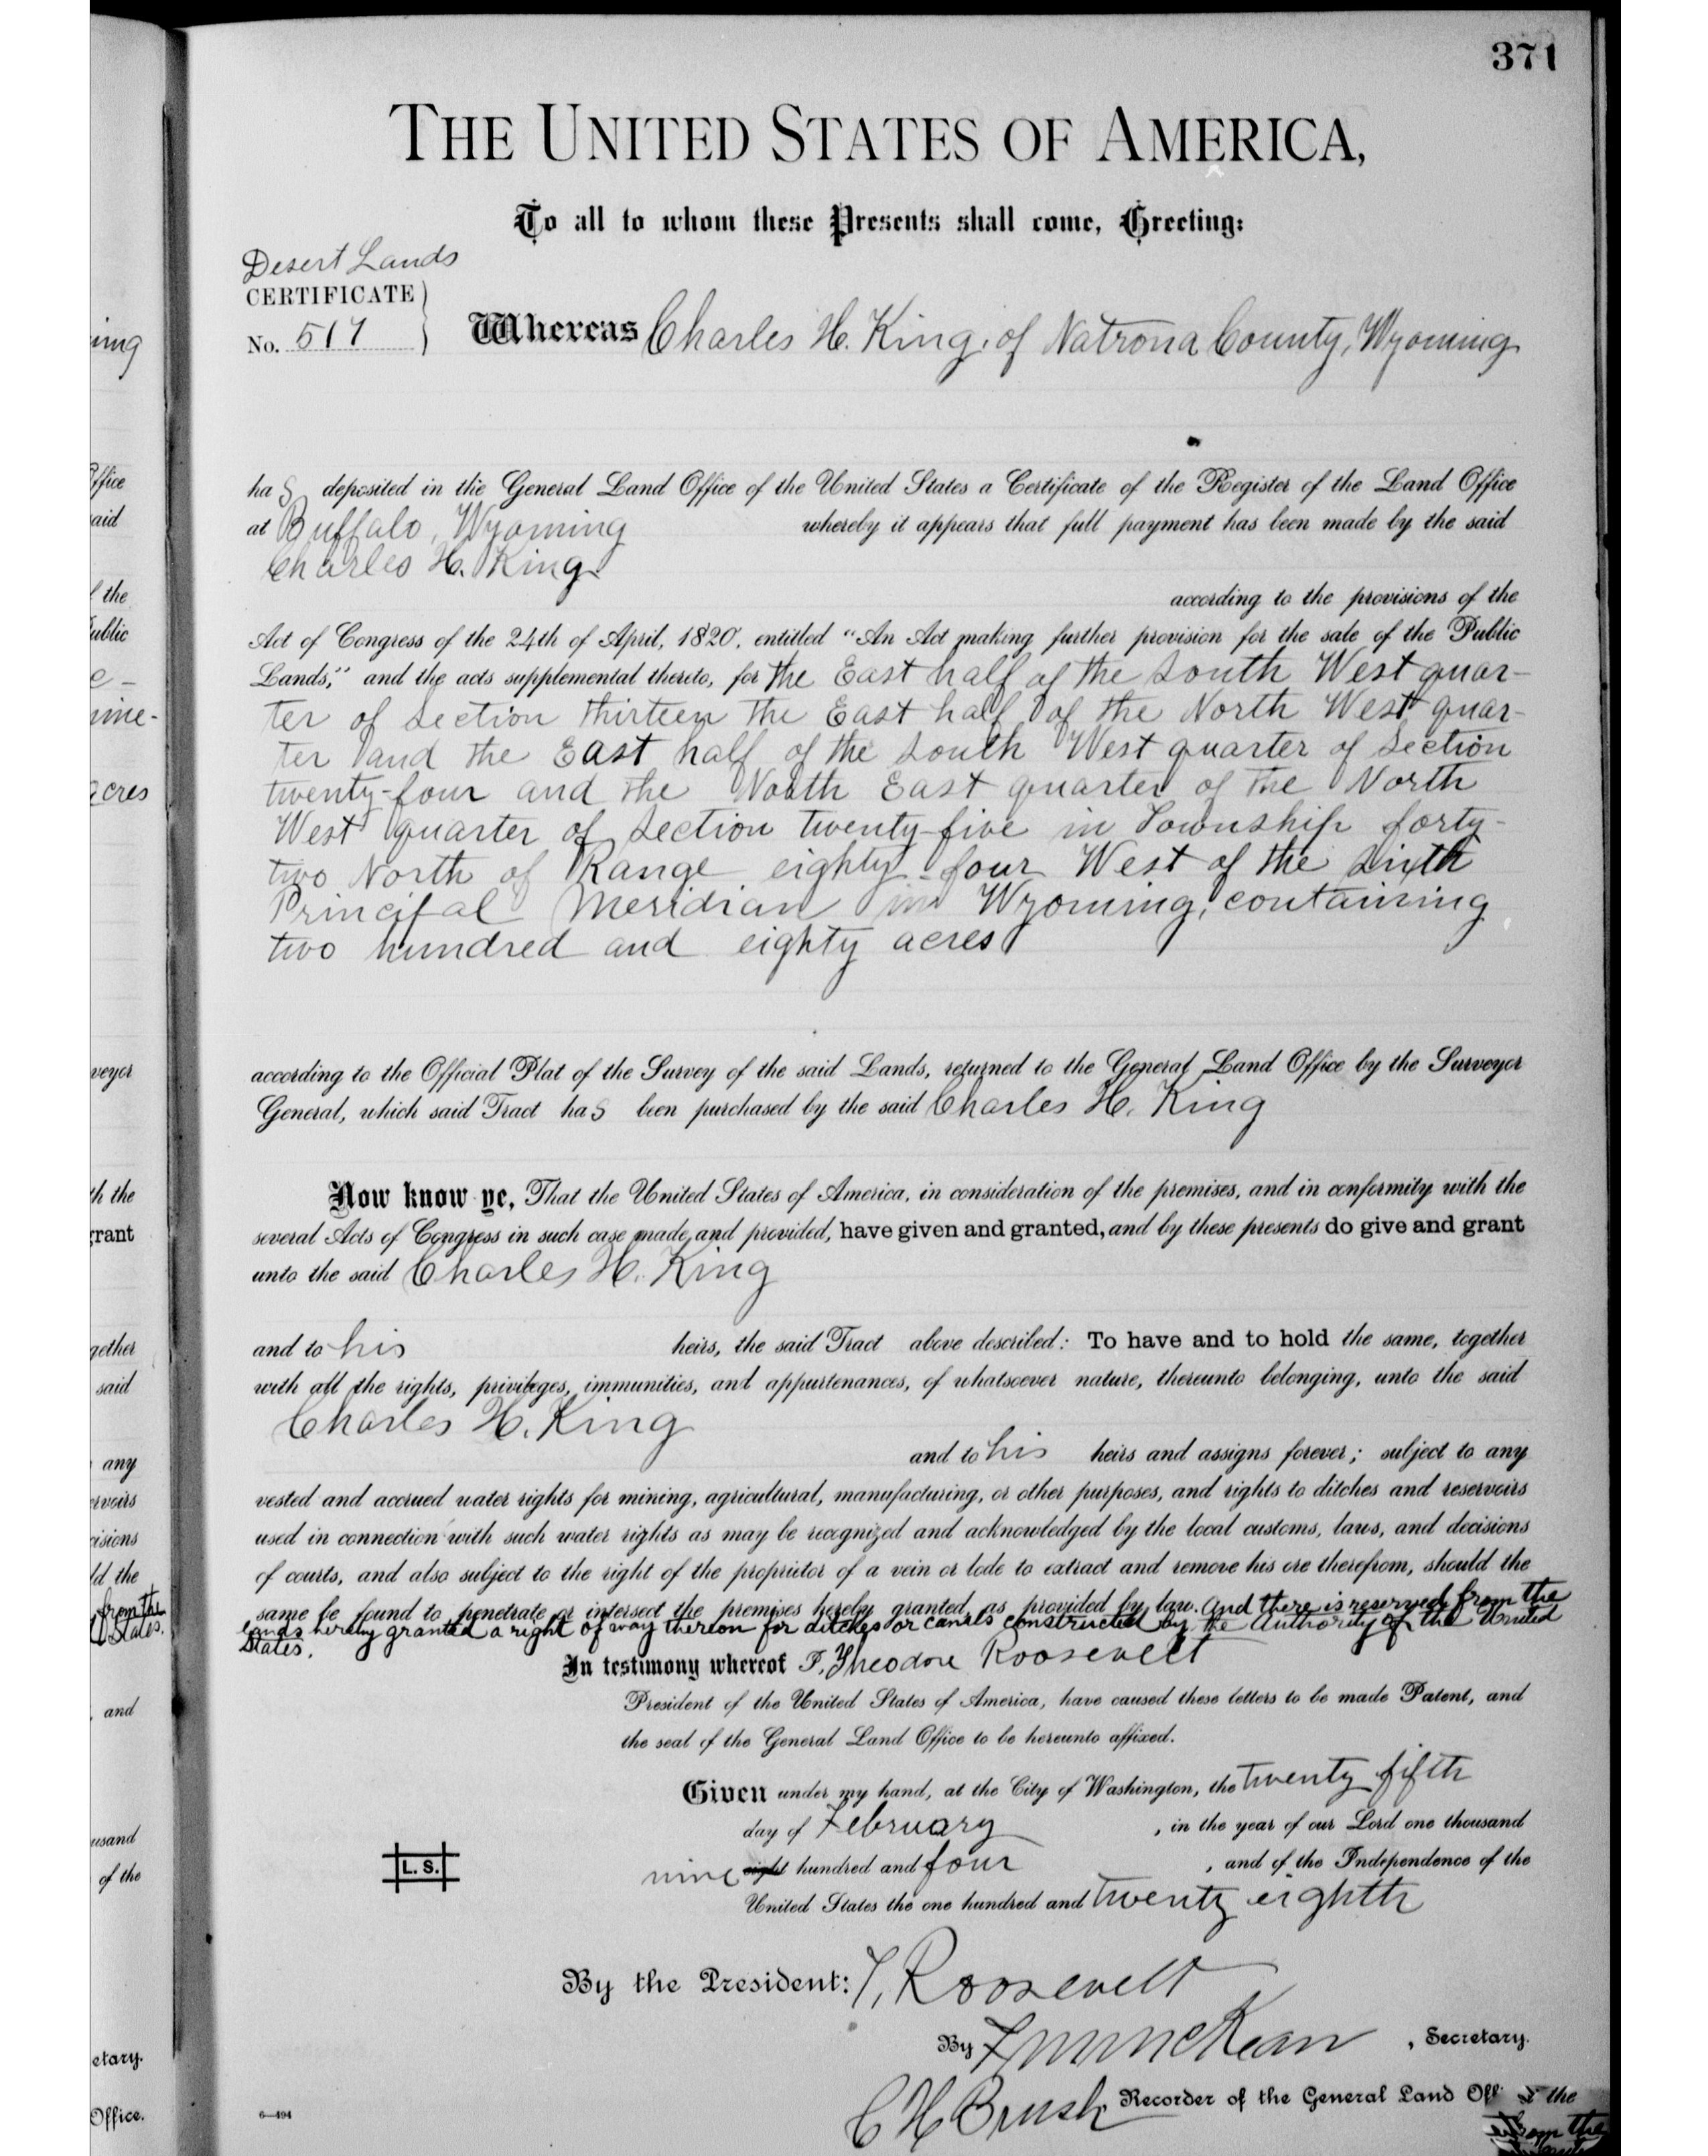 371
THE UNITED STATES OF AMERICA,
To all to whom these Presents shall come, Greeting:
Desert Lands
CERTIFICATE
No. 517
Whereas Charles H. King, of Natrona County, Wyoming
has deposited in the General Land Office of the United States a Certificate of the Register of the Land Office
at Buffalo, Wyoming whereby it appears that full payment has been made by the said
Charles H. King.
according to the provisions of the
Act of Congress of the 24th of April, 1820, entitled "An Act making further provision for the sale of the Public
Lands," and the acts supplemental thereto, for the East half of the South West quar-
ter of Section thirteen the East half of the North West quar-
ter and the East half of the South West quarter of Section
twenty-four and the North East quarter of the North
West quarter of Section twenty-five in Township forty-
two North of Range eighty-four West of the Sixth
Principal Meridian in Wyoming, containing
two hundred and eighty acres
according to the Official Plat of the Survey of the said Lands, returned to the General Land Office by the Surveyor
General, which said Tract has been purchased by the said Charles H. King
Now know ye, That the United States of America, in consideration of the premises, and in conformity with the
several Acts of Congress in such case made and provided, have given and granted, and by these presents do give and grant
unto the said Charles H. King
and to his heirs, the said Tract above described: To have and to hold the same, together
with all the rights, privileges, immunities, and appurtenances, of whatsoever nature, thereunto belonging, unto the said
Charles H. King
and to his heirs and assigns forever; subject to any
vested and accrued water rights for mining, agricultural, manufacturing, or other purposes, and rights to ditches and reservoirs
used in connection with such water rights as may be recognized and acknowledged by the local customs, laws, and decisions
of courts, and also subject to the right of the proprietor of a vein or lode to extract and remove his ore therefrom, should the
same be found to penetrate or intersect the premises hereby granted, as provided by law. And there is reserved from the
lands hereby granted a right of way thereon for ditches or canals constructed by the Authority of the United
States.
In testimony whereof I, Theodore Roosevelt
President of the United States of America, have caused these letters to be made Patent, and
the seal of the General Land Office to be hereunto affixed.
Given under my hand, at the City of Washington, the twenty fifth
day of February, in the year of our Lord one thousand
nine eight hundred and four, and of the Independence of the
United States the one hundred and twenty eighth
L. S.
By the President: T. Roosevelt
By F. M. McKean, Secretary.
C H Brush, Recorder of the General Land Off
6—494